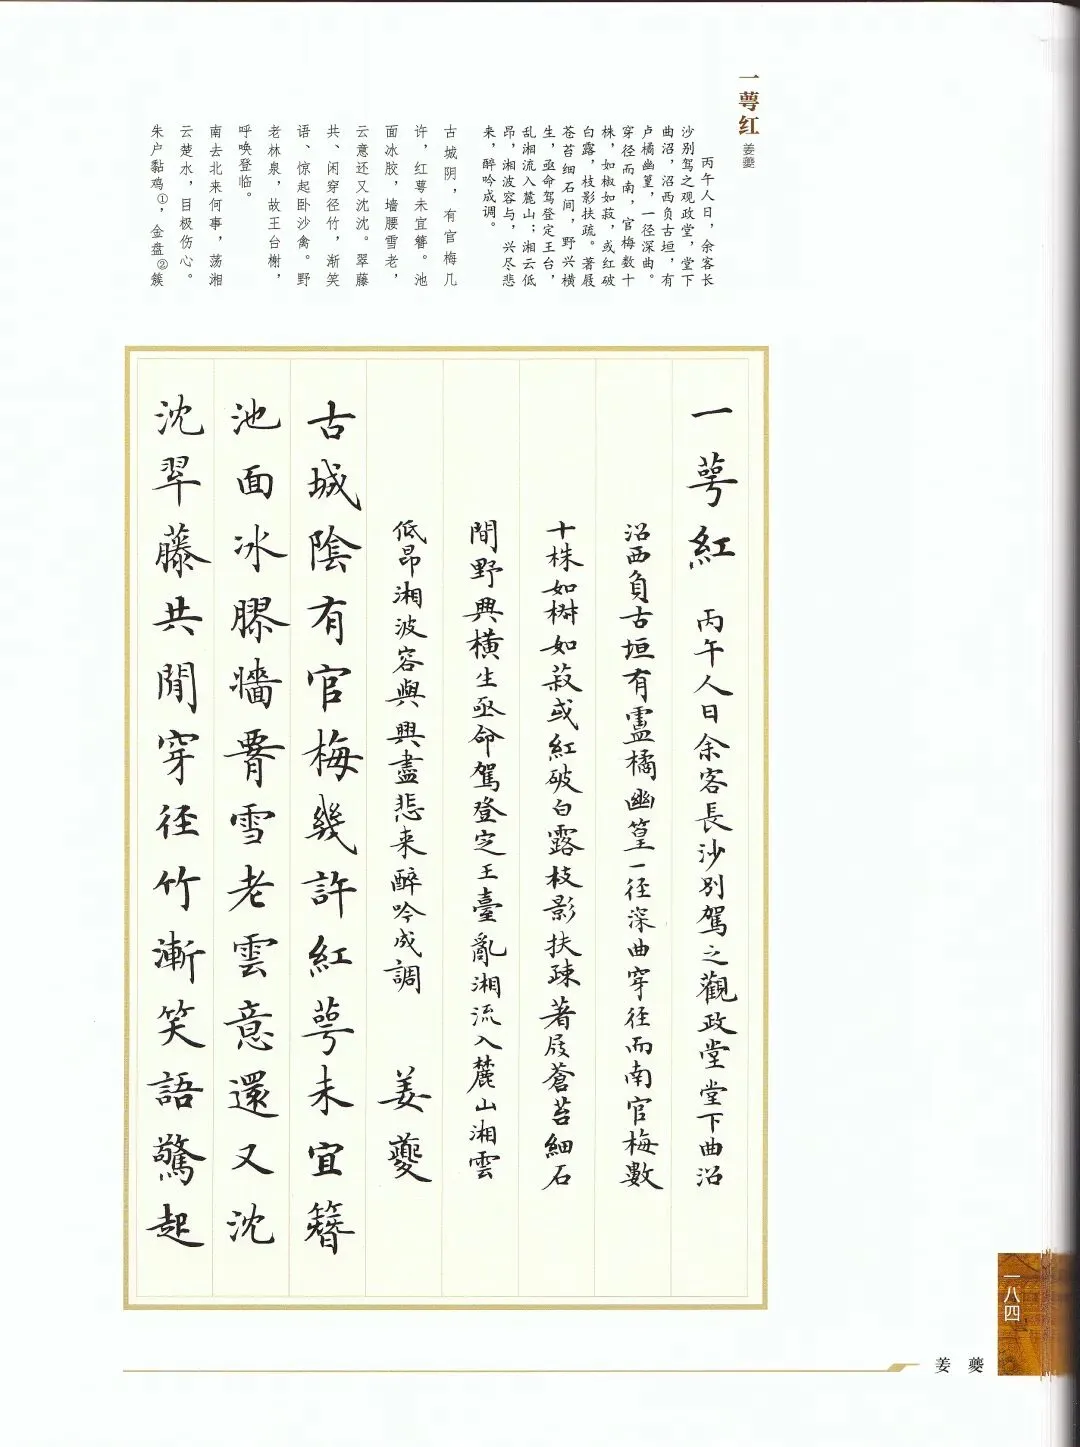 一萼红
姜夔
丙午人日，余客长
沙别驾之观政堂，堂下
曲沼，沼西负古垣，有
卢橘幽篁，一径深曲。
穿径而南，官梅数十
株，如椒如菽，或红破
白露，枝影扶疏。著屐
苍苔细石间，野兴横
生，亟命驾登定王台，
乱湘流入麓山；湘云低
昂，湘波容与，兴尽悲
来，醉吟成调。
古城阴，有官梅几
许，红萼未宜簪。池
面冰胶，墙腰雪老，
云意还又沈沈。翠藤
共、闲穿径竹，渐笑
语、惊起卧沙禽。野
老林泉，故王台榭，
呼唤登临。
南去北来何事，荡湘
云楚水，目极伤心。
朱户黏鸡①，金盘②簇
一萼紅 丙午人日余客長沙別駕之觀政堂堂下曲沼
沼西負古垣有盧橘幽篁一径深曲穿径而南官梅數
十株如樹如菽或紅破白露枝影扶疎著屐蒼苔細石
間野興橫生亟命駕登定王臺亂湘流入麓山湘雲
低昂湘波容與興盡悲来醉吟成調 姜夔
古城陰有官梅幾許紅萼未宜簪
池面冰膠牆霄雪老雲意還又沈
沈翠藤共閒穿径竹漸笑語驚起
一八四
姜夔